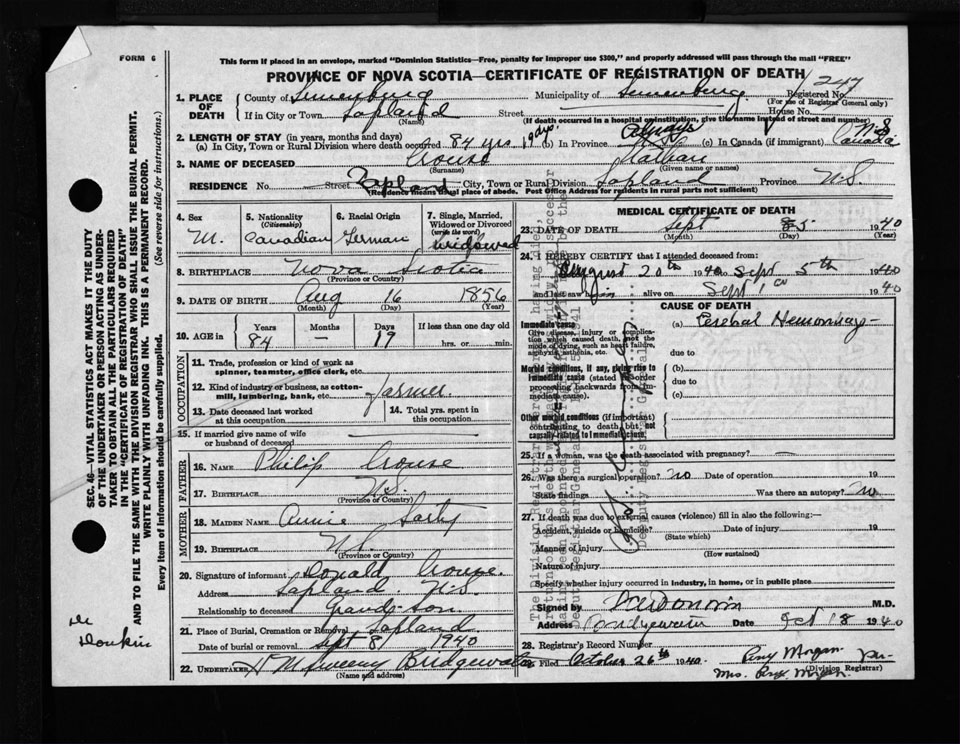 FORM 6
This form if placed in an envelope, marked "Dominion Statistics—Free, penalty for improper use $300," and properly addressed will pass through the mail "FREE"
PROVINCE OF NOVA SCOTIA—CERTIFICATE OF REGISTRATION OF DEATH
247
1. PLACE OF DEATH
County of Lunenburg Municipality of Lunenburg Registered No.
(For use of Registrar General only)
If in City or Town Lapland Street House No.
(Name) (If death occurred in a hospital or institution, give the name instead of street and number)
2. LENGTH OF STAY (in years, months and days)
(a) In City, Town or Rural Division where death occurred 84 yrs 19 dys. (b) In Province Always (c) In Canada (if immigrant) N.S. Canada
3. NAME OF DECEASED Crouse Nathan
(Surname) (Given name or names)
RESIDENCE No. Street Lapland City, Town or Rural Division Lapland Province N.S.
(Residence means usual place of abode. Post Office Address for residents in rural parts not sufficient)
4. Sex
M.
5. Nationality
(Citizenship)
Canadian
6. Racial Origin
German
7. Single, Married, Widowed or Divorced
(write the word)
widowed
8. BIRTHPLACE Nova Scotia
(Province or Country)
9. DATE OF BIRTH Aug 16 1856
(Month) (Day) (Year)
10. AGE in
Years Months Days If less than one day old
84 — 19 hrs. or min.
OCCUPATION
11. Trade, profession or kind of work as spinner, teamster, office clerk, etc.
12. Kind of industry or business, as cotton-mill, lumbering, bank, etc. Farmer
13. Date deceased last worked at this occupation
14. Total yrs. spent in this occupation
15. If married give name of wife or husband of deceased
FATHER
16. NAME Philip Crouse
17. BIRTHPLACE N.S.
(Province or Country)
MOTHER
18. MAIDEN NAME Annie
19. BIRTHPLACE N.S.
(Province or Country)
20. Signature of informant Donald Crouse.
Address Lapland N.S.
Relationship to deceased Grand-son
21. Place of Burial, Cremation or Removal Lapland
Date of burial or removal Sept 8 1940
22. UNDERTAKER Bridgewater
(Name and address)
MEDICAL CERTIFICATE OF DEATH
23. DATE OF DEATH Sept 5 1940
(Month) (Day) (Year)
24. I HEREBY CERTIFY that I attended deceased from:
August 20th 1940 to Sept 5th 1940
and last saw him alive on Sept 1st 1940
CAUSE OF DEATH
Immediate cause
Give disease, injury or complication which caused death, not the mode of dying, such as heart failure, asphyxia, asthenia, etc.
(a) Cerebral Hemorrhage
due to
Morbid conditions, if any, giving rise to immediate cause (stated in order proceeding backwards from immediate cause)
(b)
due to
(c)
Other morbid conditions (if important) contributing to death but not causally related to immediate cause.
25. If a woman, was the death associated with pregnancy? —
26. Was there a surgical operation? no Date of operation 19
State findings Was there an autopsy? no
27. If death was due to external causes (violence) fill in also the following:—
Accident, suicide or homicide? Date of injury 19
(State which)
Manner of injury
(How sustained)
Nature of injury
Specify whether injury occurred in industry, in home, or in public place
Signed by M.D.
Address Bridgewater Date Oct 18 1940
28. Registrar's Record Number
Filed October 26th 1940. Peny Morgan
(Division Registrar)
per
Mrs. Morgan.
SEC. 46—VITAL STATISTICS ACT MAKES IT THE DUTY
OF THE UNDERTAKER OR PERSON ACTING AS UNDER-
TAKER TO OBTAIN ALL THE PARTICULARS REQUIRED
IN THE "CERTIFICATE OF REGISTRATION OF DEATH"
AND TO FILE THE SAME WITH THE DIVISION REGISTRAR WHO SHALL ISSUE THE BURIAL PERMIT.
WRITE PLAINLY WITH UNFADING INK. THIS IS A PERMANENT RECORD.
Every item of information should be carefully supplied. (See reverse side for instructions.)